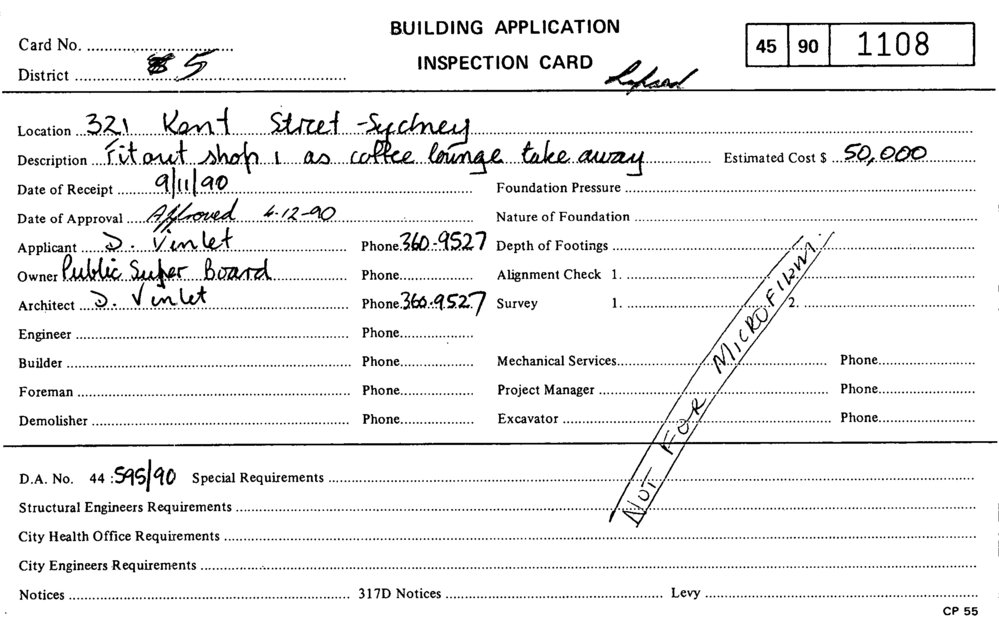 BUILDING APPLICATION
INSPECTION CARD
45 90 1108
Card No.
District 5
Lapsed
Location 321 Kent Street - Sydney
Description Fitout shop 1 as coffee lounge take away Estimated Cost $ 50,000
Date of Receipt 9/11/90 Foundation Pressure
Date of Approval Approved 4-12-90 Nature of Foundation
Applicant D. Vinlet Phone 360-9527 Depth of Footings
Owner Public Super Board Phone Alignment Check 1.
Architect D. Vinlet Phone 360-9527 Survey 1. 2.
Engineer Phone
Builder Phone Mechanical Services Phone
Foreman Phone Project Manager Phone
Demolisher Phone Excavator Phone
NOT FOR MICROFILM.
D.A. No. 44 : 595/90 Special Requirements
Structural Engineers Requirements
City Health Office Requirements
City Engineers Requirements
Notices 317D Notices Levy
CP 55